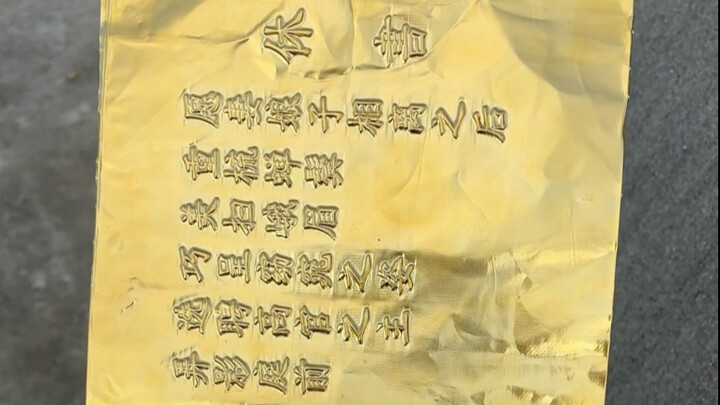 休書
愿妻娘子相离之后
重梳蝉鬓
美扫峨眉
巧呈窈窕之姿
选聘高官之主
弄影庭前